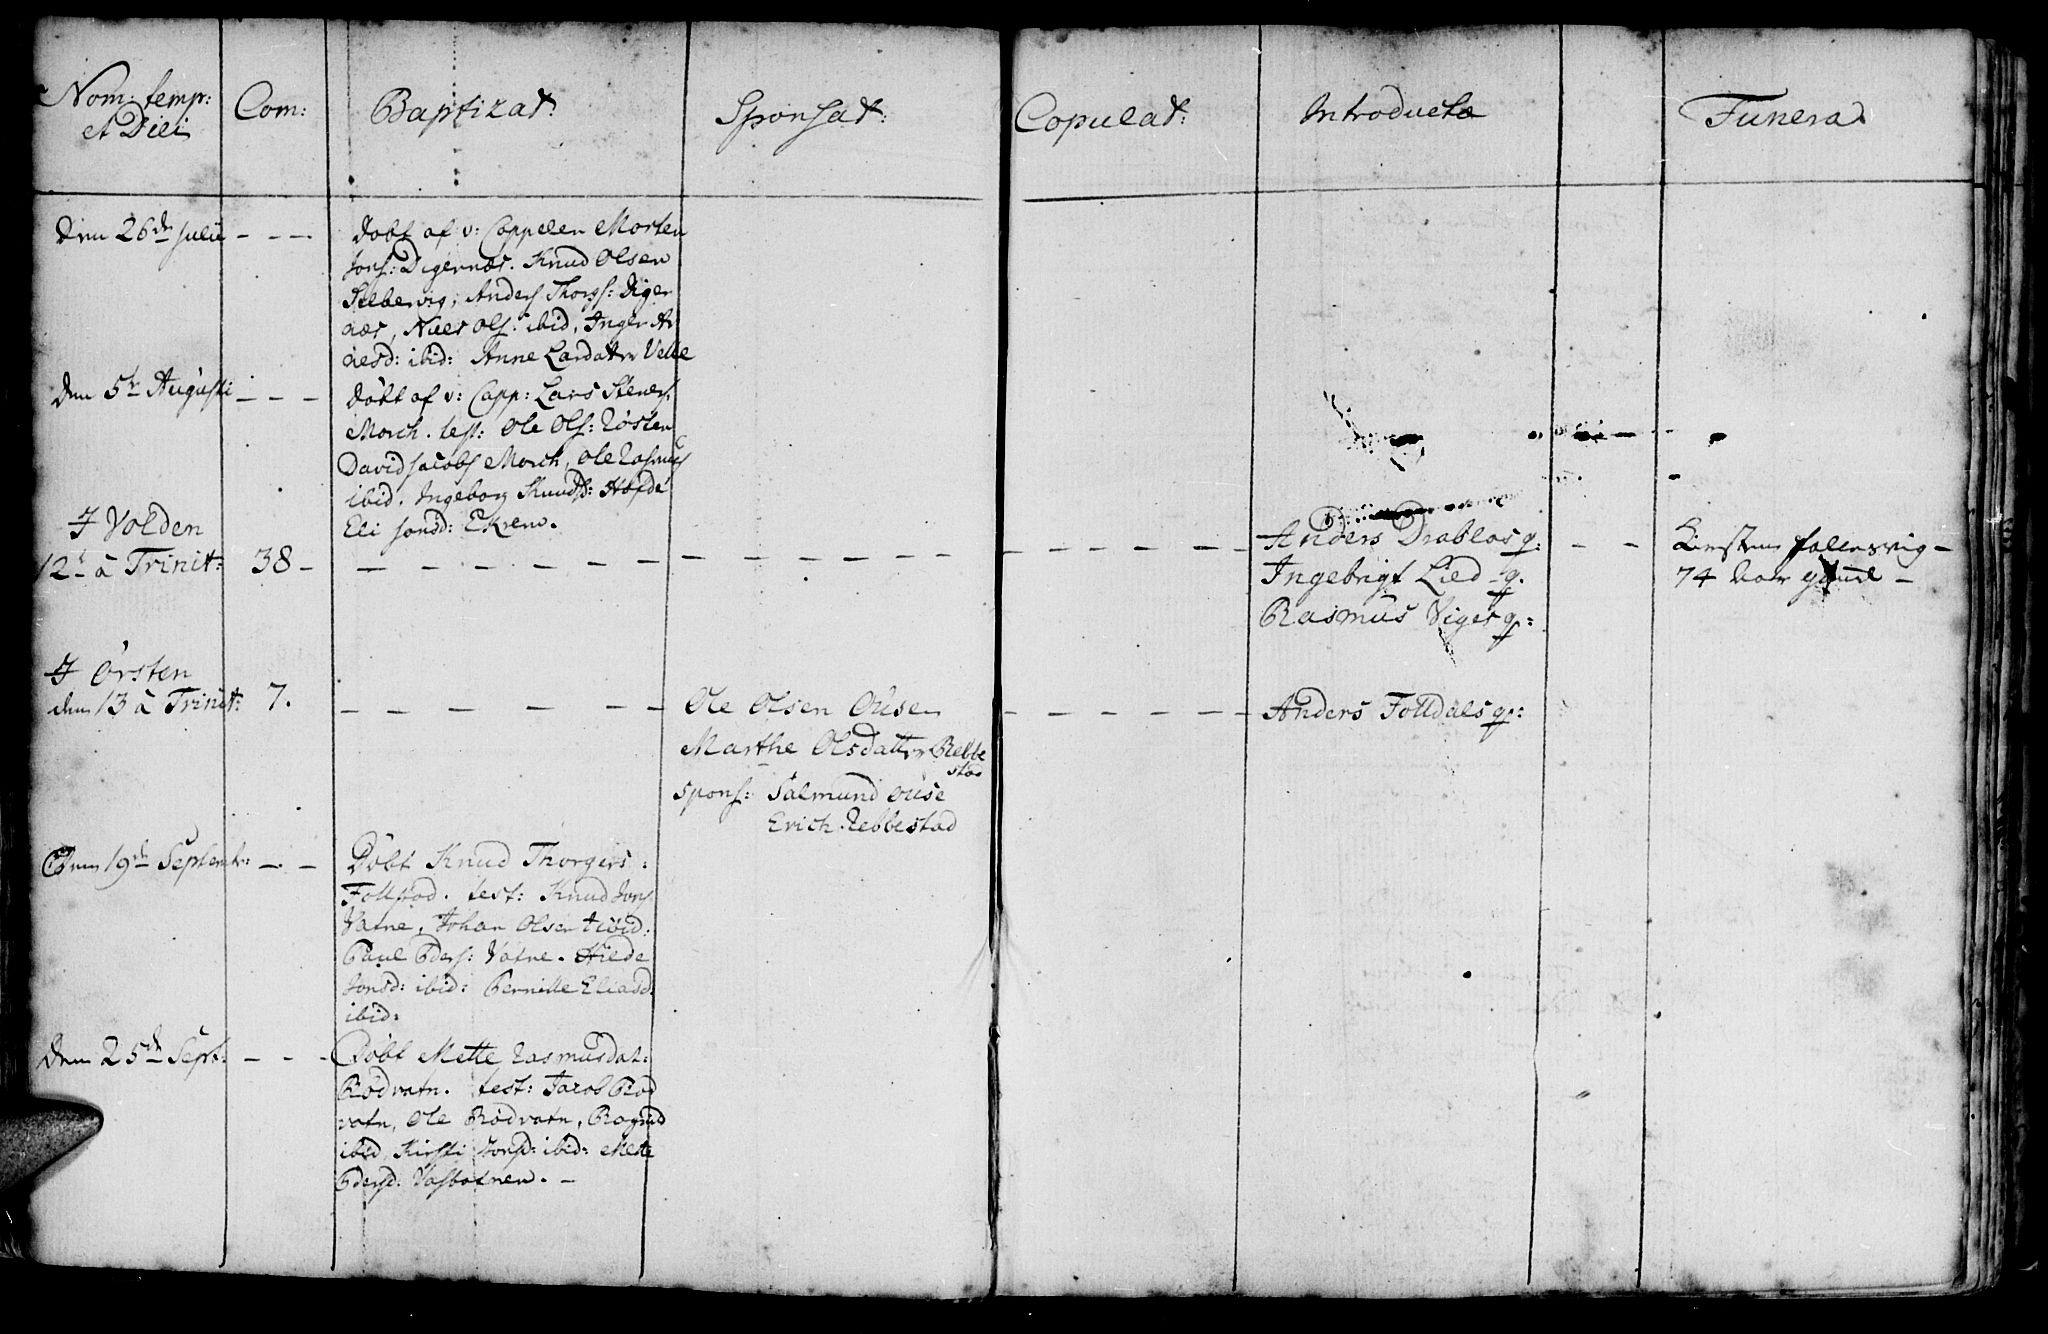 Nom: temp:
et Diei
Com:
Baptizat:
Sponsat:
Copulat:
Introductæ
Funera
Den 26de Julii
Døbt af v: Cappelen Morten
Jons: Digernæs. Knud Olsen
Anders Thors: Diger
næs, Niels Ols: ibid, Inger Ar
nesd: ibid: Anne Larsdatter Velle
den 5te Augusti
Døbt af v: Capp: Lars Steners.
Morch. test: Ole Ols: Røsten
David Jacobs Morch, Ole Rasmus
ibid. Ingeborg Knudsd: Hofde
Eli Jonsd: Ekrem.
I Volden
12te à Trinit:
38
Anders Drablos q:
Ingebrigt Lied q.
Rasmus Viger q:
74 Aar
I Ørsten
den 13 à Trinit:
7.
Ole Olsen Ouse
Marthe Olsdatter Rebbe
stad
spons: Salmund Ouse
Erich Rebbestad
Anders Folldals q:
Den 19de Septembr:
Døbt Knud Thorgers:
Follstad. test: Knud Jons
Vatne, Johan Olsen ibid:
Paul Peders: Vatne. Hilde
Jonsd: ibid: Pernille Eliasd.
ibid:
Den 25de Sept:
Døbt Mette Rasmusdat:
Rødvatn. test: Jacob Rød
vatn, Ole Rødvatn, Ragnild
ibid, Kirsti Jonsd: ibid: Mette
Pedersd: Vasbotnen.